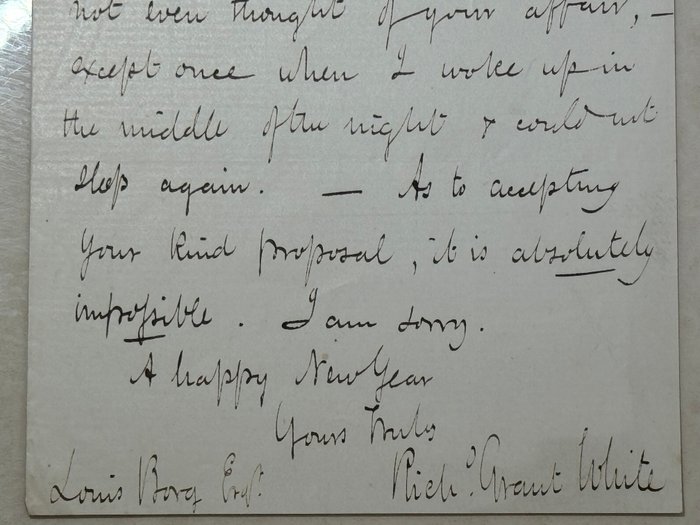 not even thought of your affair, —
except once when I woke up in
the middle of the night & could not
sleep again. — As to accepting
your kind proposal, it is absolutely
impossible. I am sorry.
A happy New Year
Yours Truly
Louis Borg Esqr.
Richd. Grant White